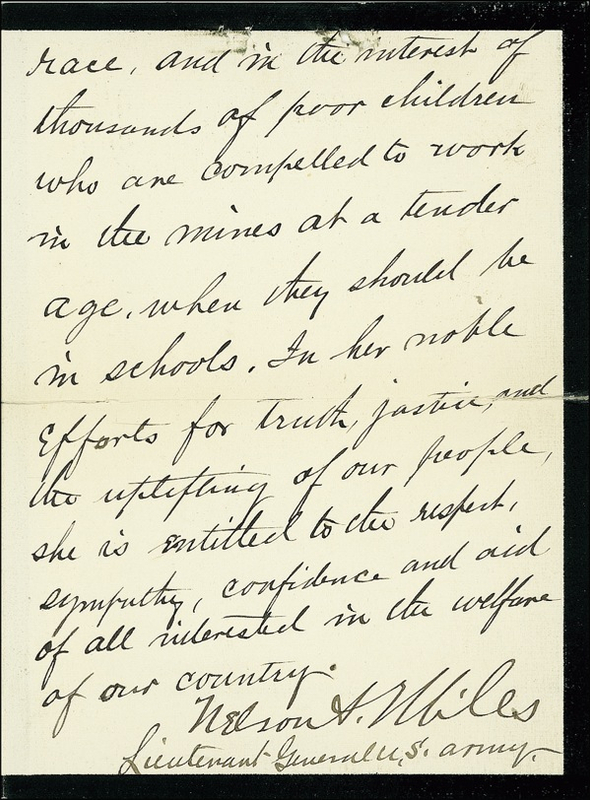 race, and in the interest of
thousands of poor children
who are compelled to work
in the mines at a tender
age, when they should be
in schools. In her noble
efforts for truth, justice, and
the uplifting of our people,
she is entitled to the respect,
sympathy, confidence and aid
of all interested in the welfare
of our country.
Nelson A. Miles
Lieutenant General U.S. army.